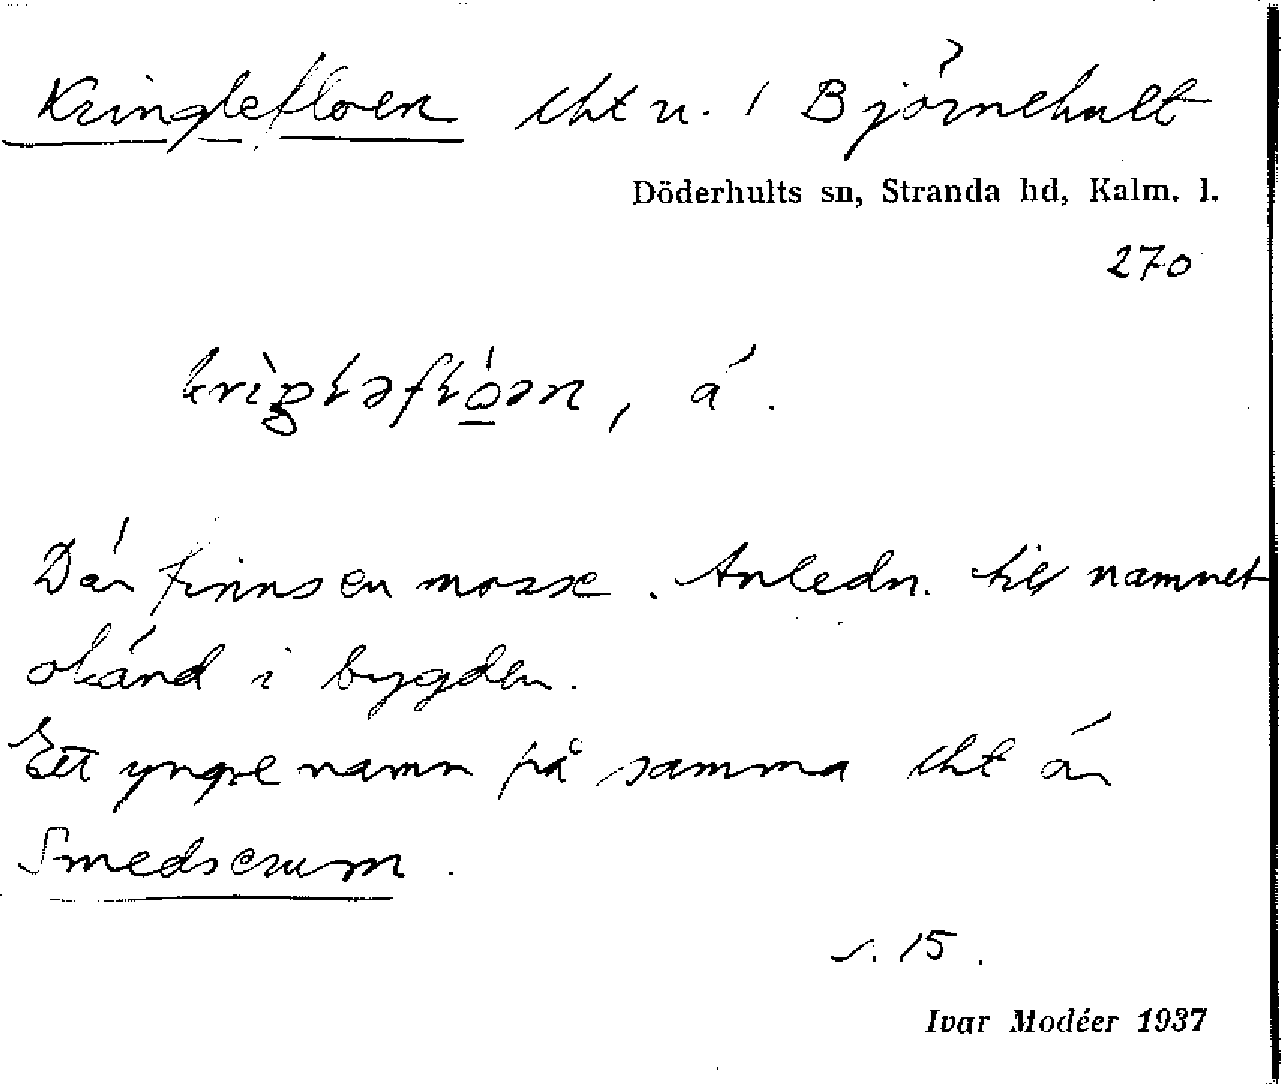 Kringlefloen lht u. / Björnehult
Döderhults sn, Stranda hd, Kalm. l.
270
, á.
Där finns en mosse. Anledn. till namnet
okänd i bygden.
Ett yngre namn på samma lht är
Smedserum.
s. 15.
Ivar Modéer 1937